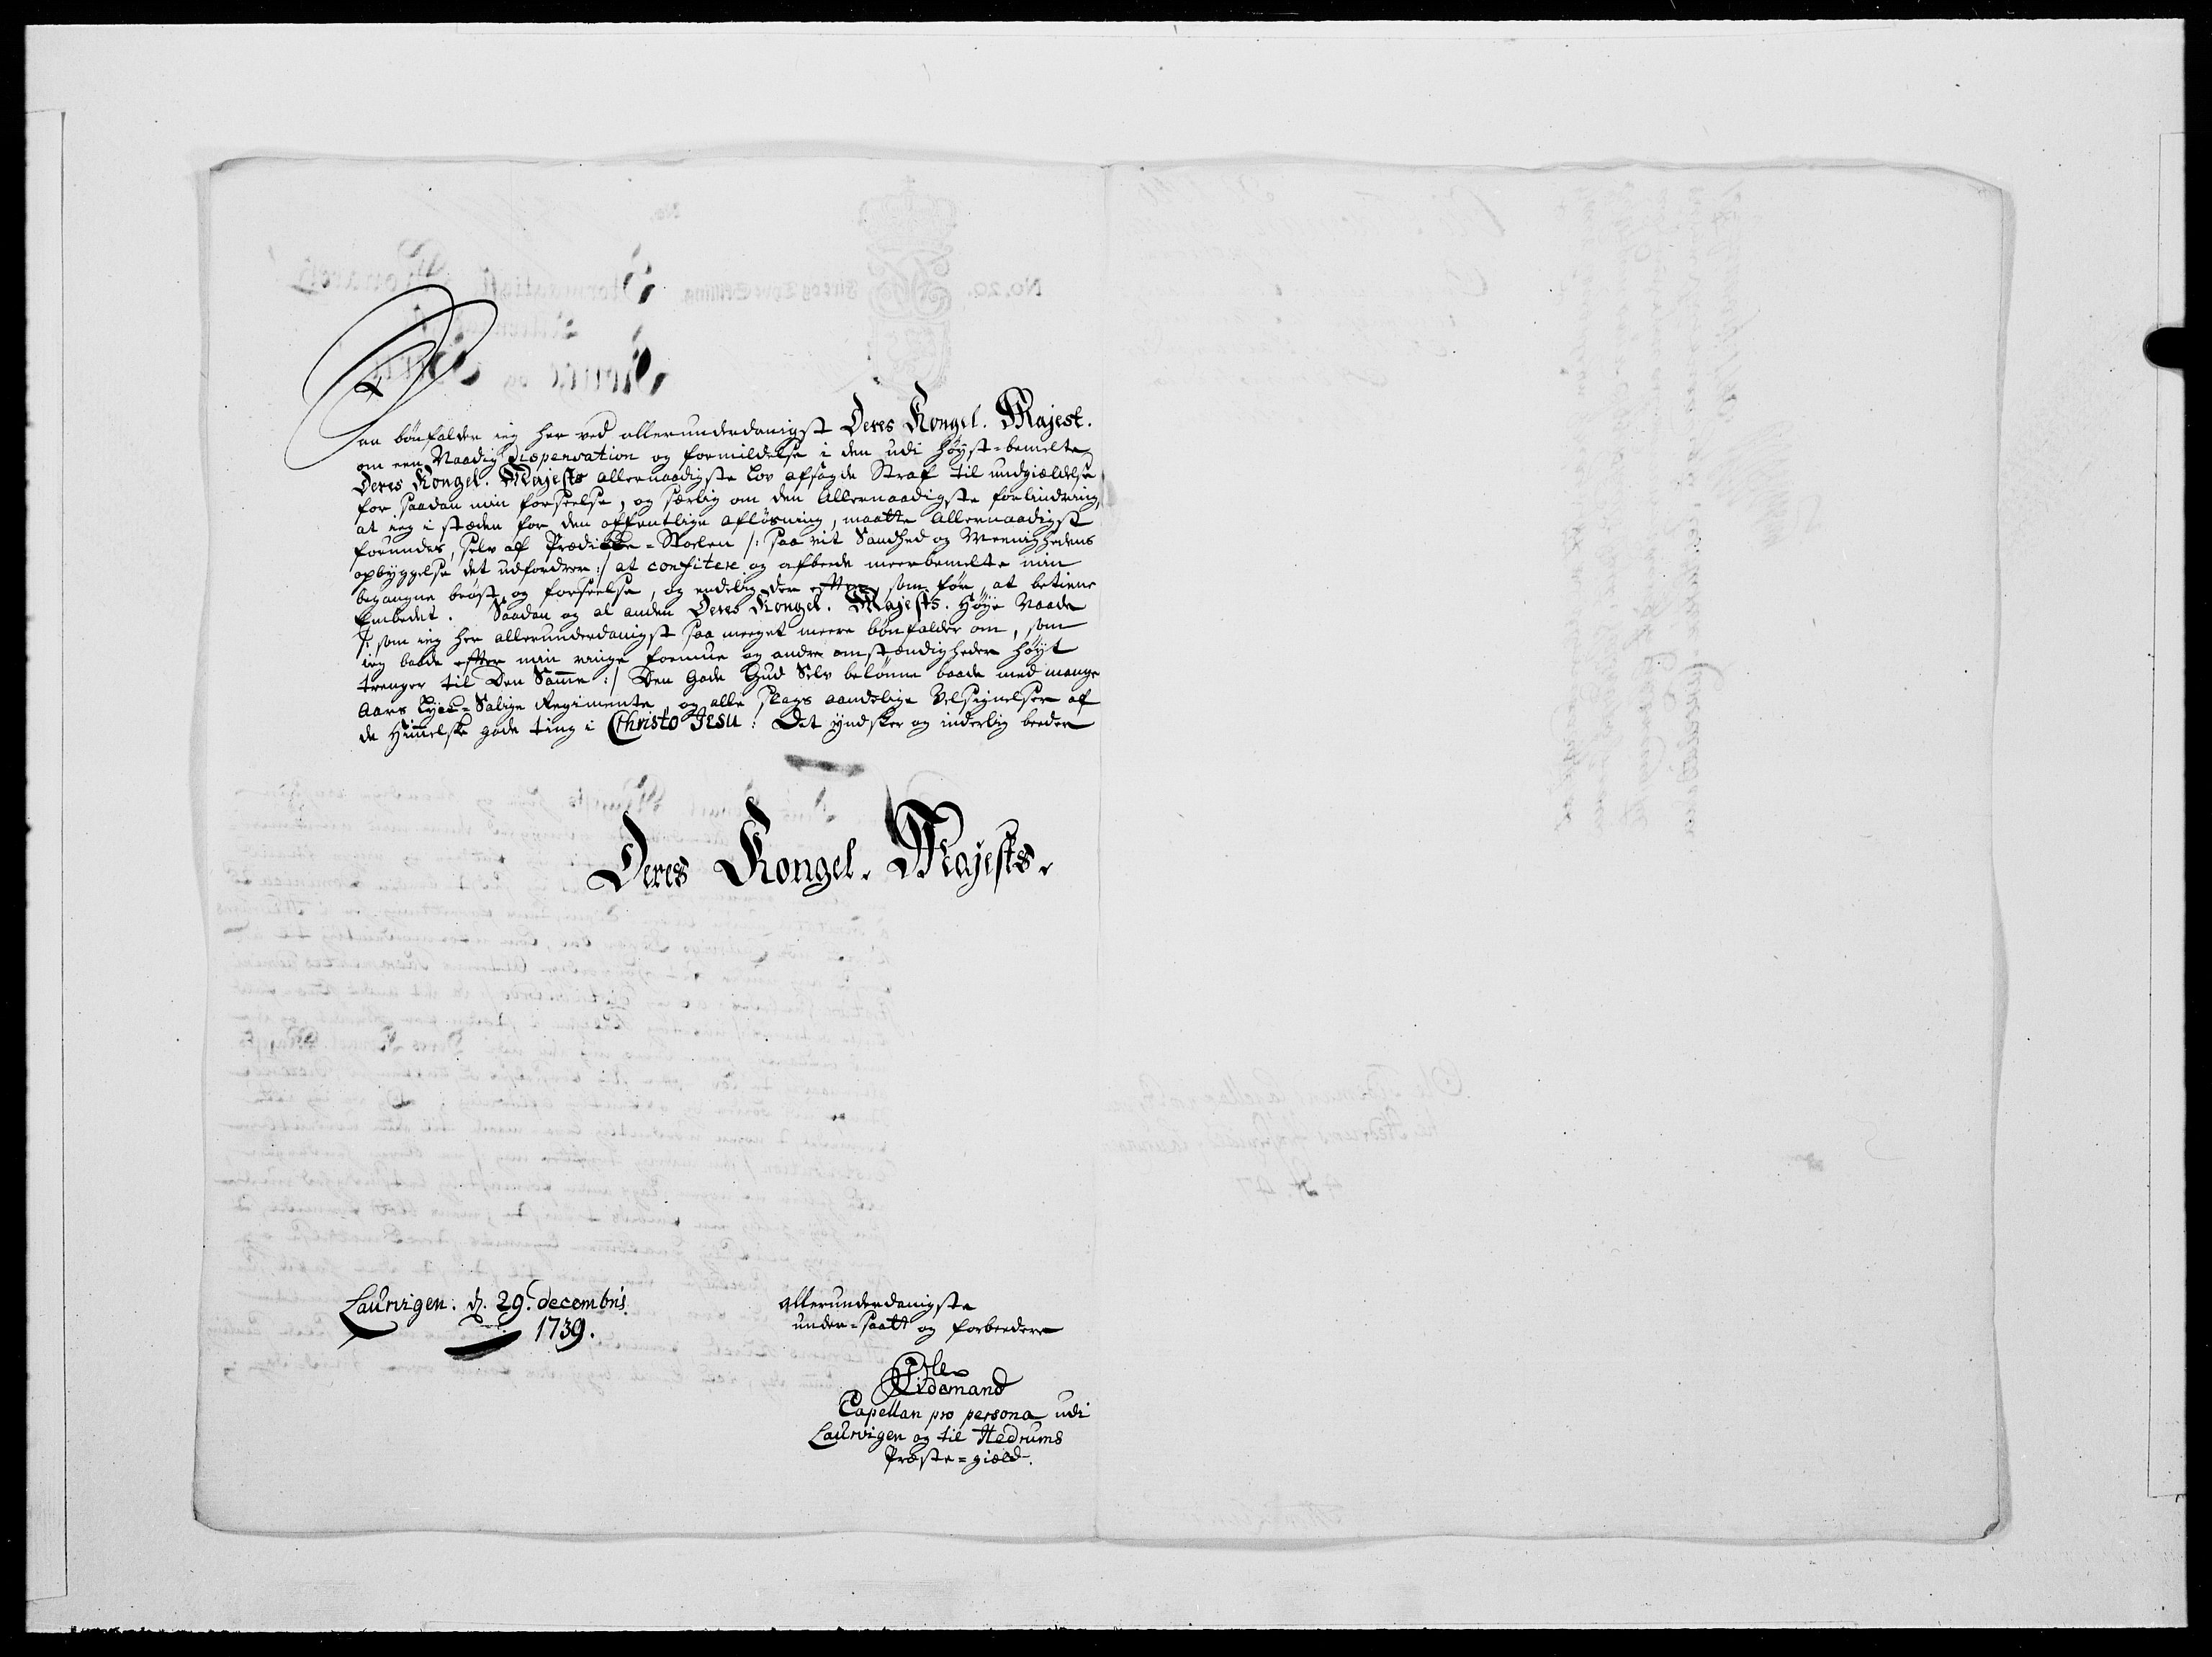 Saa bønfalder ieg her ved allerunderdanigst Deres Kongel. Majest.
om een Naadig Dispensation og formildelse i den udi høyst-bemelte
Deres Kongel. Majests allernaadigste Lov afsagde Straf til undgiældelse
for saadan min forseelse, og særlig om den Allernaadigste forlindring,
at ieg i stæden for den offentlige afløsning, maatte Allernaadigst
forundes, selv af Prædikke-Stoelen /: saa vit Sandhed og Meenighedens
opbyggelse det udfordrer :/ at confitere og afbeede meerbemelte min
begangne brøst og forseelse, og endelig der efter, som før, at betiene
Embedet. Saadan og al anden Deres Kongel. Majests. Høye Naade
/: som ieg her allerunderdanigst saa meeget meere bønfalder om, som
ieg baade efter min ringe formue og andre omstændigheder høyt
trenger til Den Samme :/ Den Gode Gud Selv belønne baade med mange
Aars Lyck-Salige Regimente, og alle slags aandelige Velsignelser af
de Himmelske gode ting i Christo Jesu: Det ynsker og inderlig beeder
Deres Kongel. Majests.
Laurvigen. d. 29. decembris
1739.
allerunderdanigste
under-saatt og forbeedere
Ole
Tidemand
Capellan pro persona udi
Laurvigen og til Hedrums
Præste-gield.